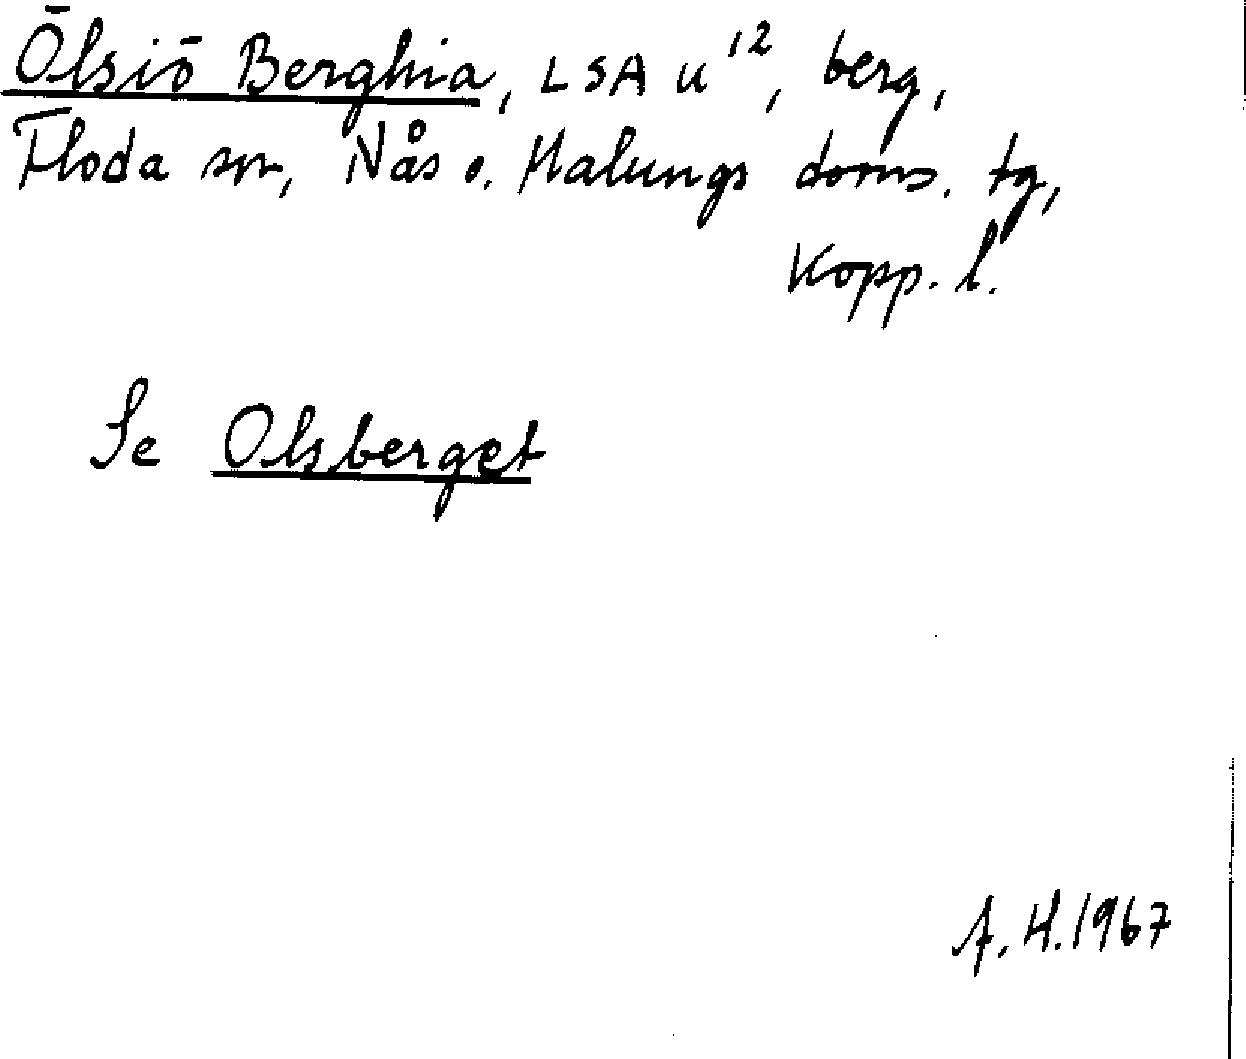 Ölsiö Berghia, LSA u 12, berg,
Floda sn, Nås o. Malungs doms. tg,
Kopp. l.
Se Olsberget
A. H. 1967